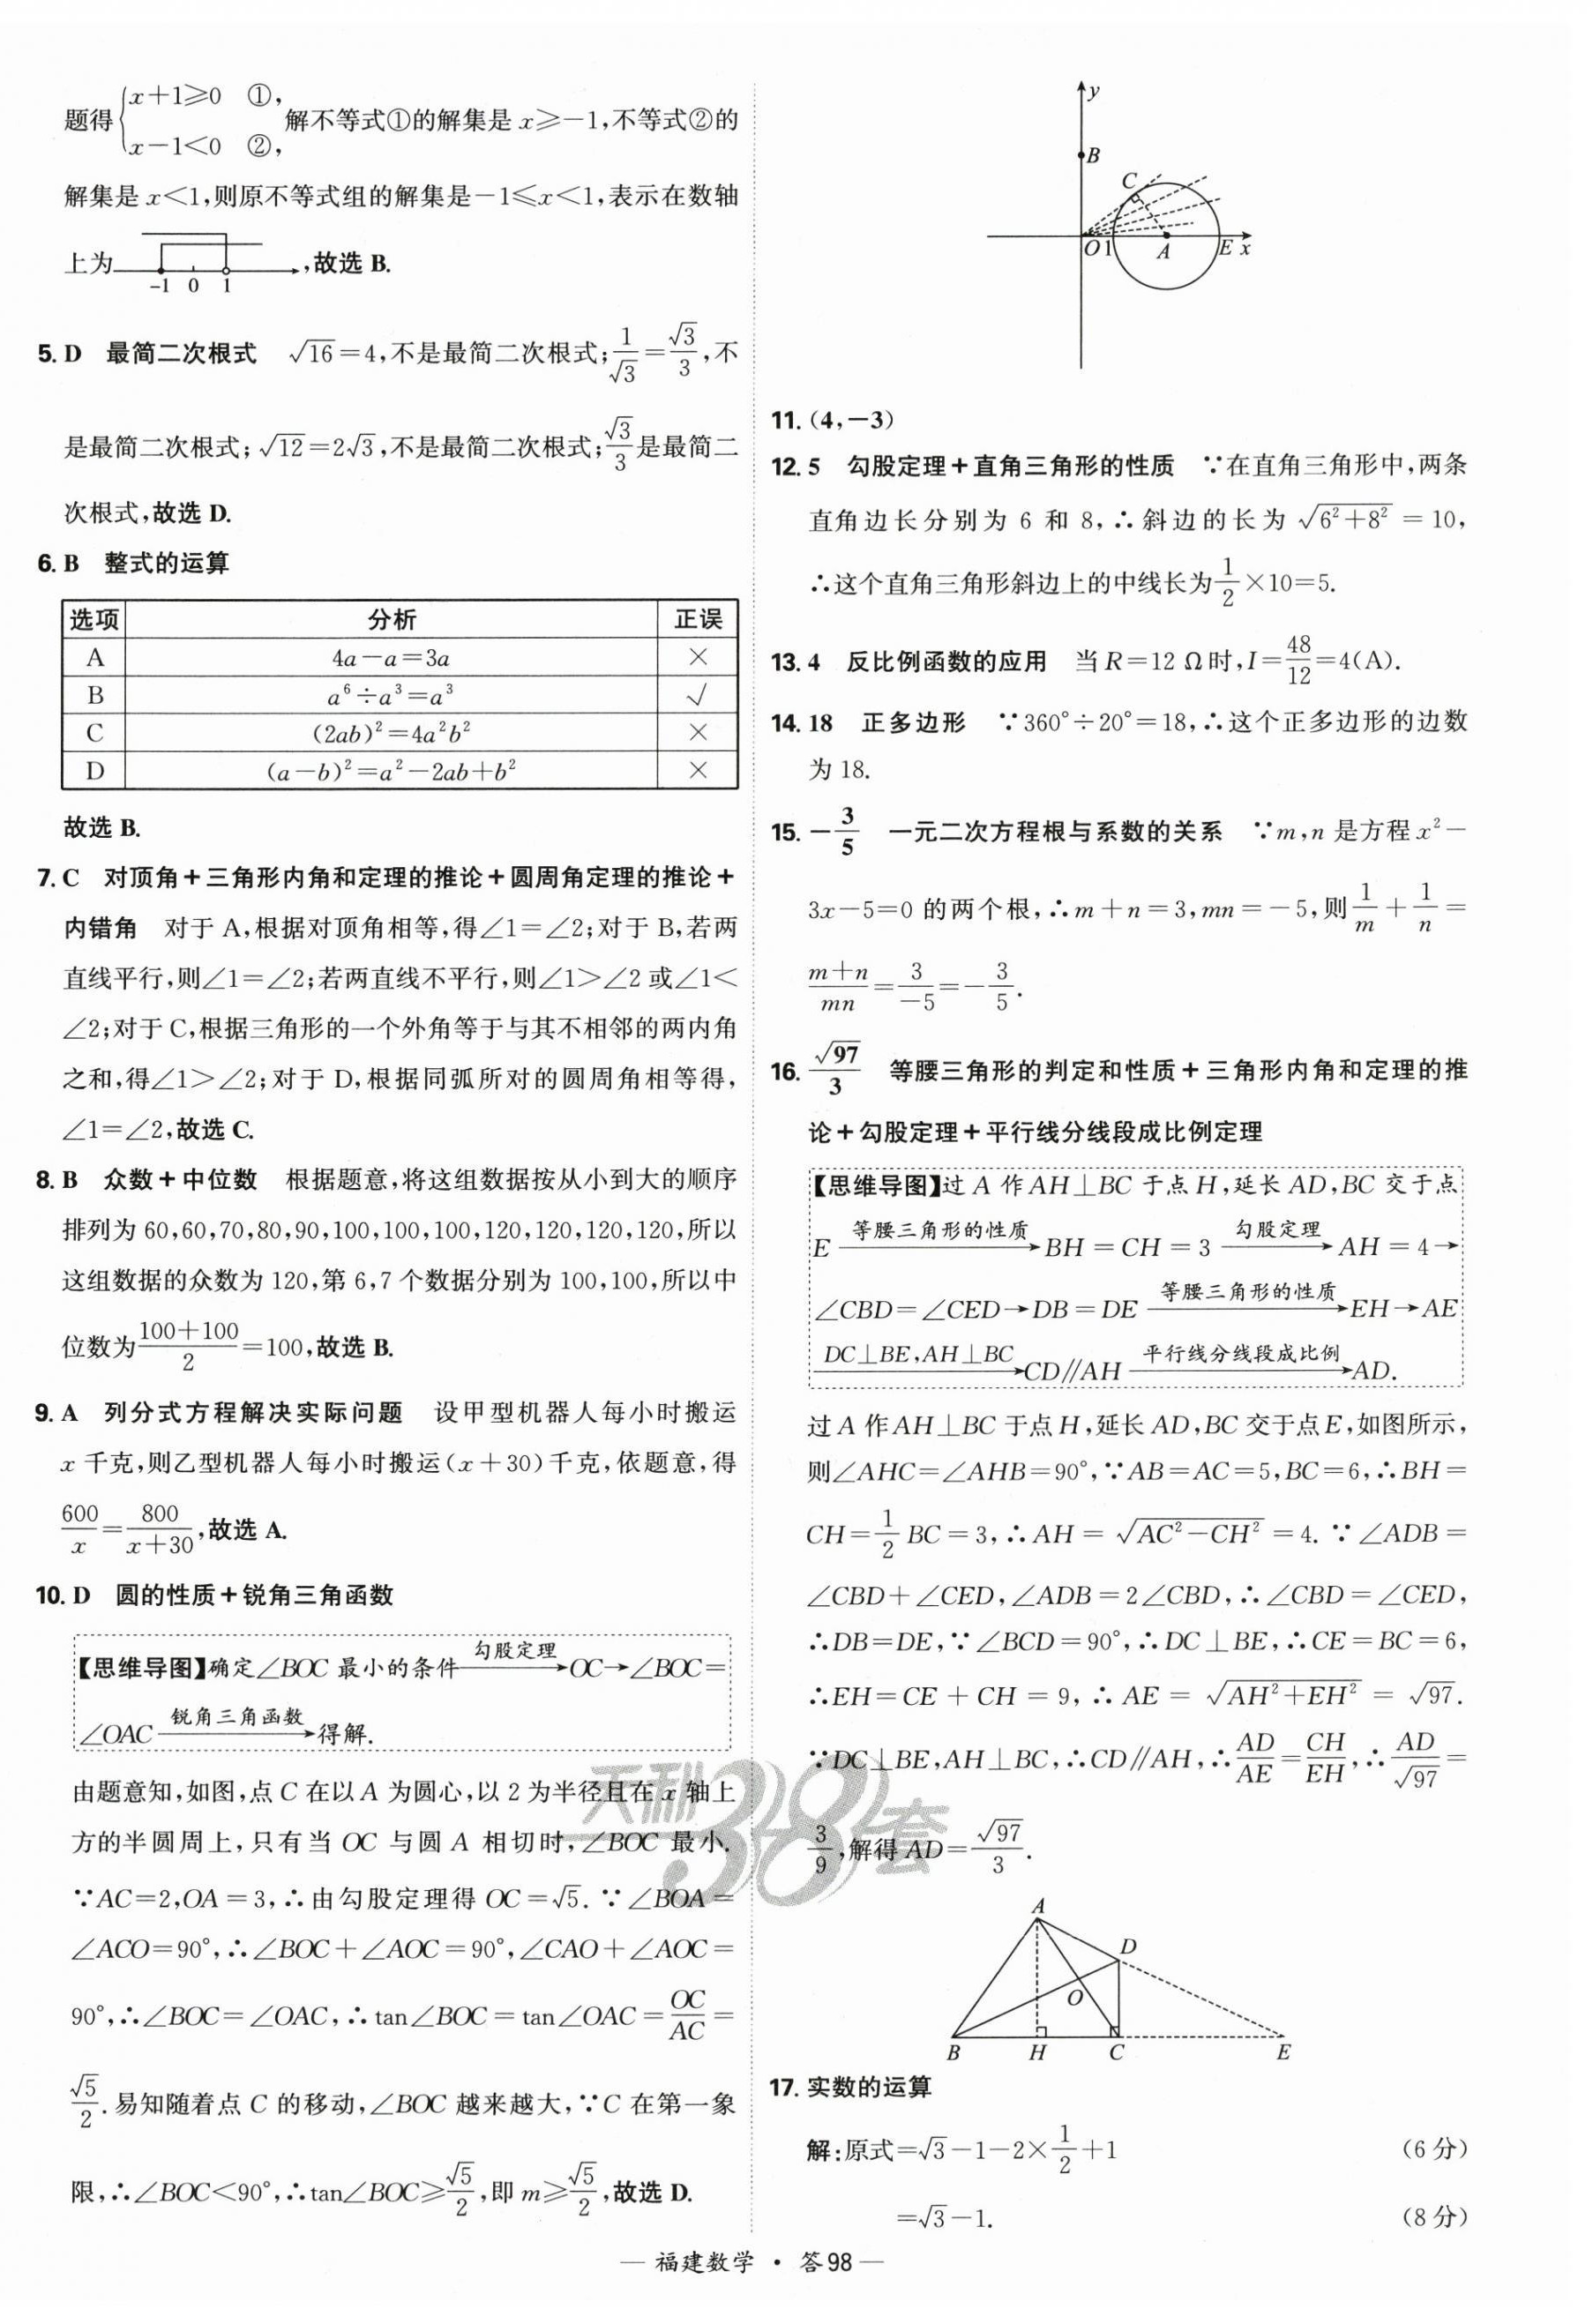 题得{x+1≥0 ①, x-1<0 ②, 解不等式①的解集是 x≥-1,不等式②的
解集是 x<1,则原不等式组的解集是-1≤x<1,表示在数轴
上为 ,故选 B.
-1 0 1
5. D 最简二次根式 √16=4,不是最简二次根式;1/√3=√3/3,不
是最简二次根式;√12=2√3,不是最简二次根式;√3/3是最简二
次根式,故选 D.
6. B 整式的运算
选项 分析 正误
A 4a-a=3a ×
B a⁶÷a³=a³ √
C (2ab)²=4a²b² ×
D (a-b)²=a²-2ab+b² ×
故选 B.
7. C 对顶角+三角形内角和定理的推论+圆周角定理的推论+
内错角 对于 A,根据对顶角相等,得∠1=∠2;对于 B,若两
直线平行,则∠1=∠2;若两直线不平行,则∠1>∠2 或∠1<
∠2;对于 C,根据三角形的一个外角等于与其不相邻的两内角
之和,得∠1>∠2;对于 D,根据同弧所对的圆周角相等得,
∠1=∠2,故选 C.
8. B 众数+中位数 根据题意,将这组数据按从小到大的顺序
排列为 60,60,70,80,90,100,100,100,120,120,120,120,所以
这组数据的众数为 120,第 6,7 个数据分别为 100,100,所以中
位数为(100+100)/2=100,故选 B.
9. A 列分式方程解决实际问题 设甲型机器人每小时搬运
x 千克,则乙型机器人每小时搬运(x+30)千克,依题意,得
600/x=800/(x+30),故选 A.
10. D 圆的性质+锐角三角函数
【思维导图】确定∠BOC 最小的条件 勾股定理→OC→∠BOC=
∠OAC 锐角三角函数→得解.
由题意知,如图,点 C 在以 A 为圆心,以 2 为半径且在 x 轴上
方的半圆周上,只有当 OC 与圆 A 相切时,∠BOC 最小.
∵AC=2,OA=3,∴由勾股定理得 OC=√5. ∵∠BOA=
∠ACO=90°,∴∠BOC+∠AOC=90°,∠CAO+∠AOC=
90°,∴∠BOC=∠OAC,∴tan∠BOC=tan∠OAC=OC/AC=
√5/2.易知随着点 C 的移动,∠BOC 越来越大,∵C 在第一象
限,∴∠BOC<90°,∴tan∠BOC≥√5/2,即 m≥√5/2,故选 D.
y
B
C
O 1 A E x
11. (4,-3)
12. 5 勾股定理+直角三角形的性质 ∵在直角三角形中,两条
直角边长分别为 6 和 8,∴斜边的长为√(6²+8²)=10,
∴这个直角三角形斜边上的中线长为1/2×10=5.
13. 4 反比例函数的应用 当 R=12 Ω时,I=48/12=4(A).
14. 18 正多边形 ∵360°÷20°=18,∴这个正多边形的边数
为 18.
15. -3/5 一元二次方程根与系数的关系 ∵m,n 是方程 x²-
3x-5=0 的两个根,∴m+n=3,mn=-5,则1/m+1/n=
(m+n)/mn=3/-5=-3/5.
16. √97/3 等腰三角形的判定和性质+三角形内角和定理的推
论+勾股定理+平行线分线段成比例定理
【思维导图】过 A 作 AH⊥BC 于点 H,延长 AD,BC 交于点
E 等腰三角形的性质→BH=CH=3 勾股定理→AH=4→
∠CBD=∠CED→DB=DE 等腰三角形的性质→EH→AE
DC⊥BE,AH⊥BC→CD∥AH 平行线分线段成比例→AD.
过 A 作 AH⊥BC 于点 H,延长 AD,BC 交于点 E,如图所示,
则∠AHC=∠AHB=90°,∵AB=AC=5,BC=6,∴BH=
CH=1/2 BC=3,∴AH=√(AC²-CH²)=4. ∵∠ADB=
∠CBD+∠CED,∠ADB=2∠CBD,∴∠CBD=∠CED,
∴DB=DE,∵∠BCD=90°,∴DC⊥BE,∴CE=BC=6,
∴EH=CE+CH=9,∴AE=√(AH²+EH²)=√97.
∵DC⊥BE,AH⊥BC,∴CD∥AH,∴AD/AE=CH/EH,∴AD/√97=
3/9,解得 AD=√97/3.
天利38套
A
D
O
B H C E
17. 实数的运算
解:原式=√3-1-2×1/2+1 (6 分)
=√3-1. (8 分)
— 福建数学 · 答98 —